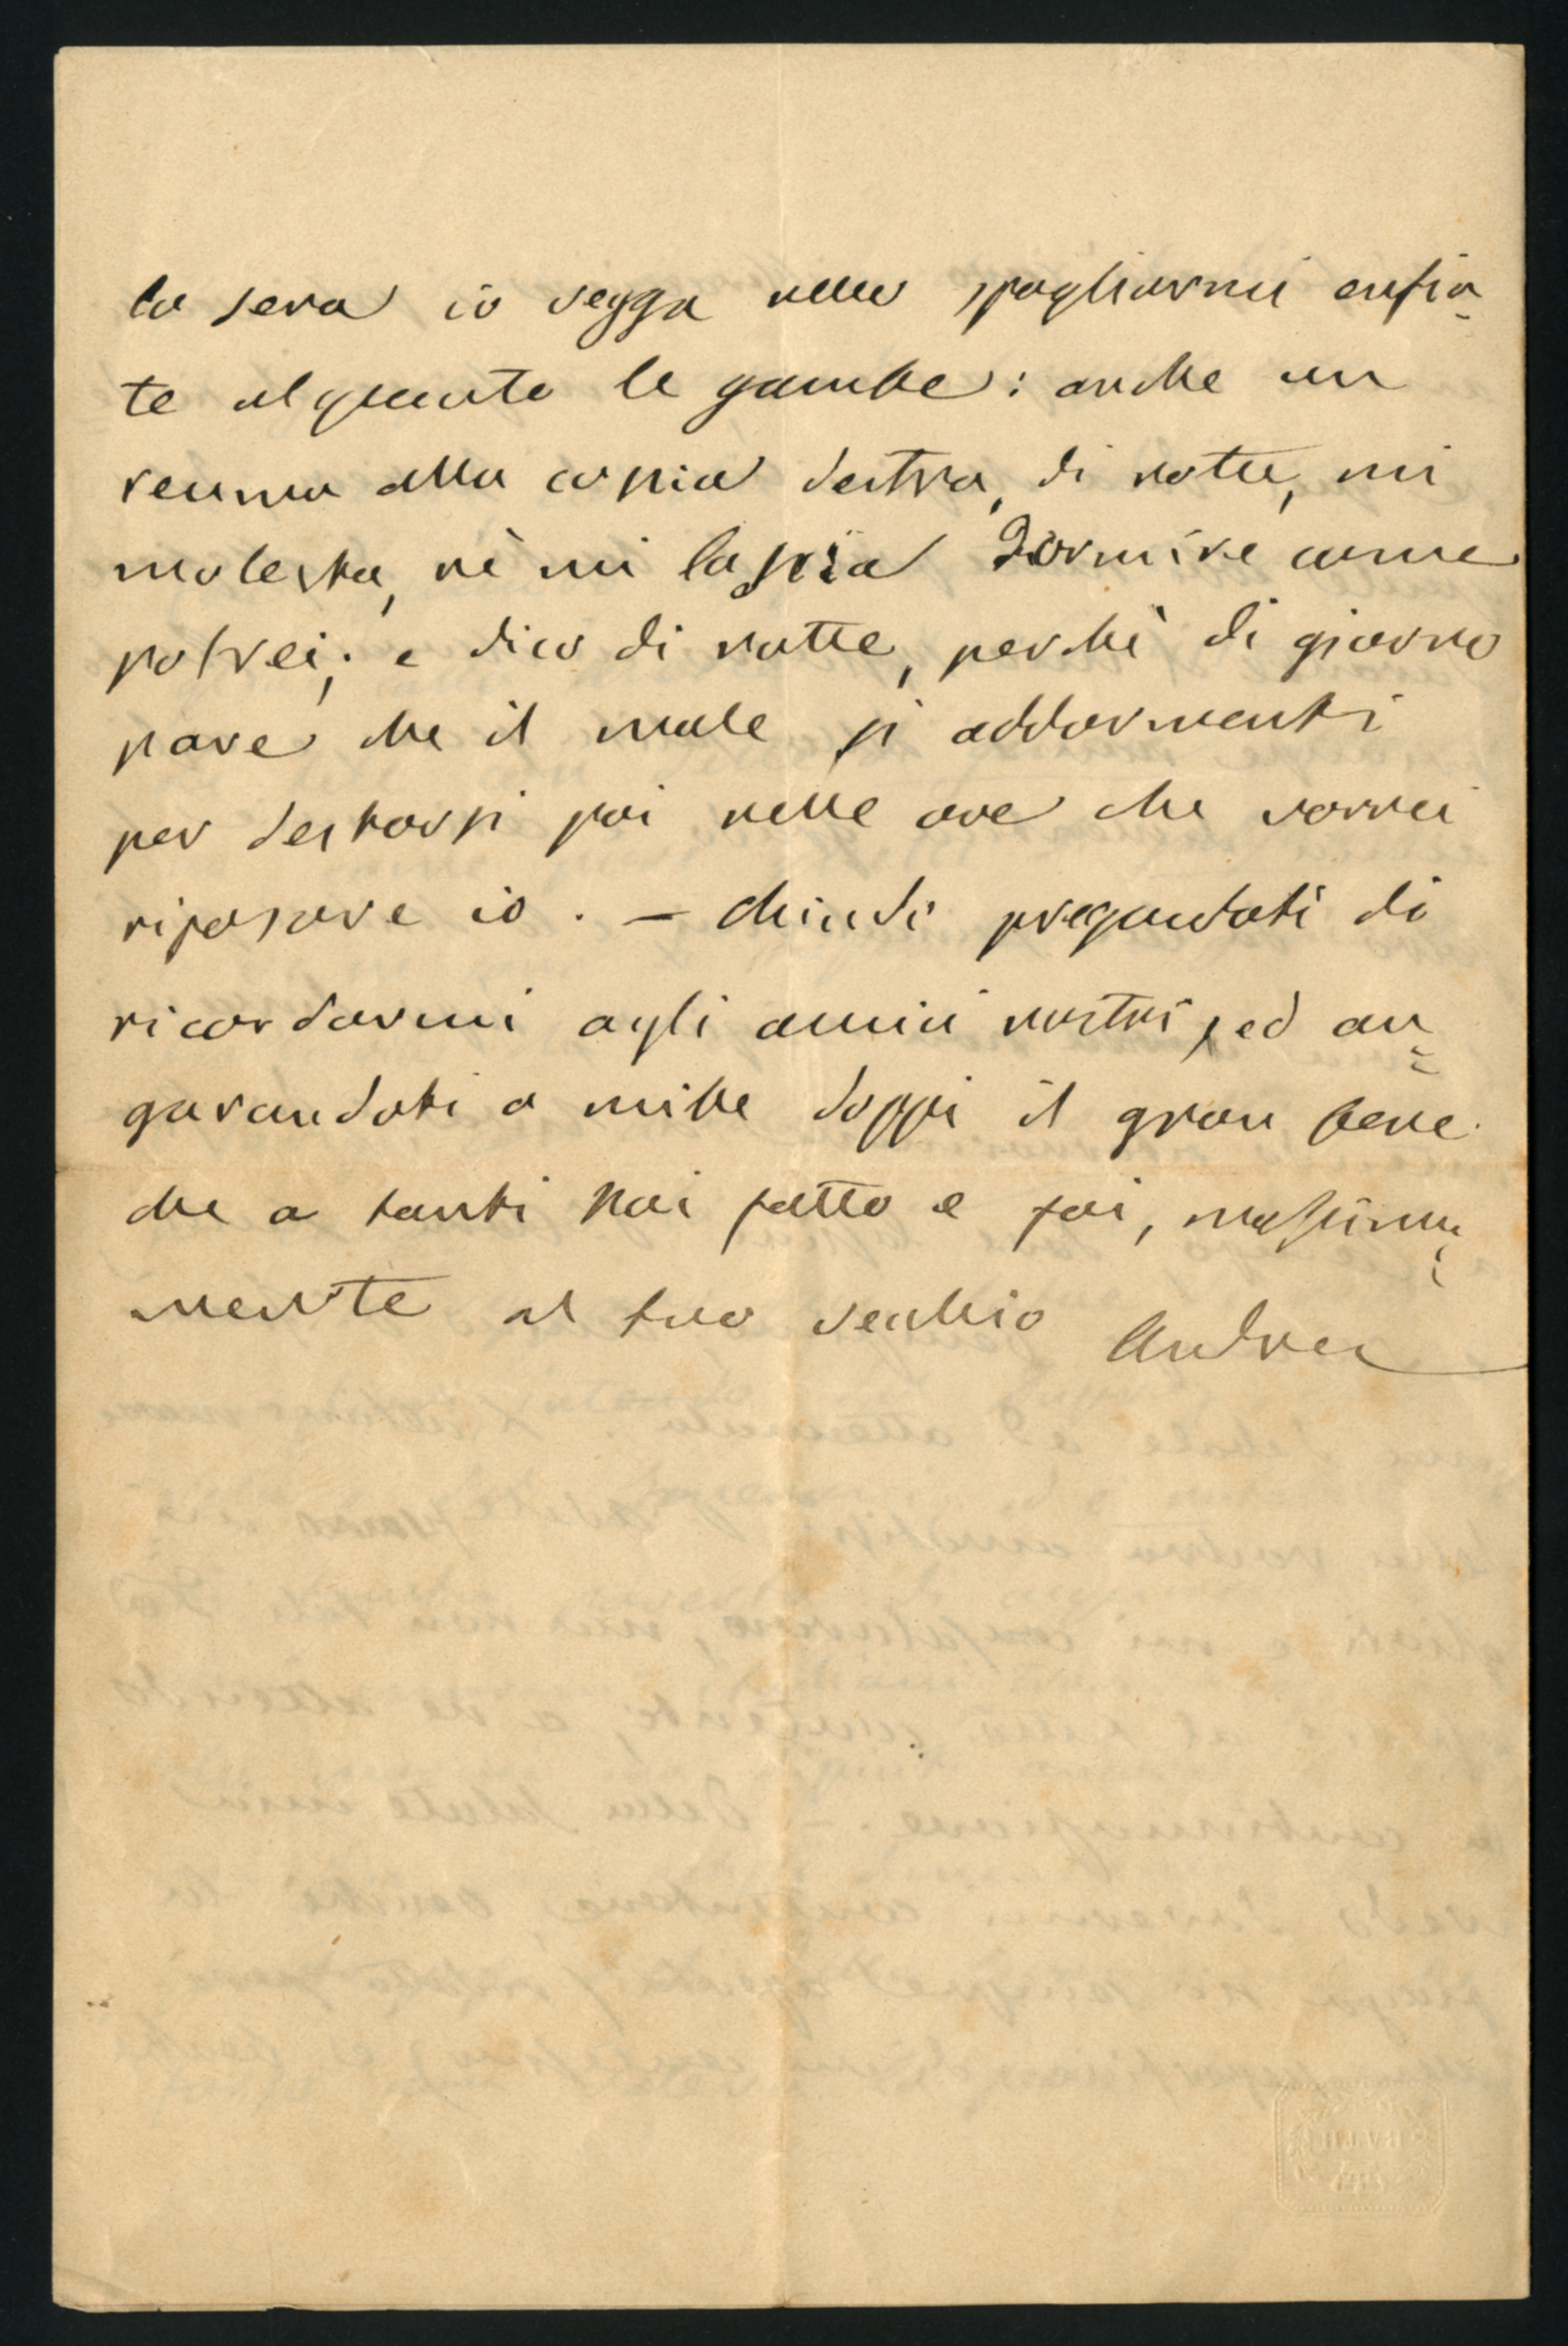 la sera io vegga nello spogliarmi enfia-
te alquanto le gambe: anche un
reuma alla coscia destra, di notte, mi
molesta, nè mi lascia dormire come
potrei; e dico di notte, perchè di giorno
pare che il male si addormenti
per destarsi poi nelle ore che vorrei
riposare io. — Chiudi pregandoti di
ricordarmi agli amici nostri, ed au=
gurandoti a mille doppi il gran bene
che a tanti hai fatto e fai, massima=
mente al tuo vecchio Andrea